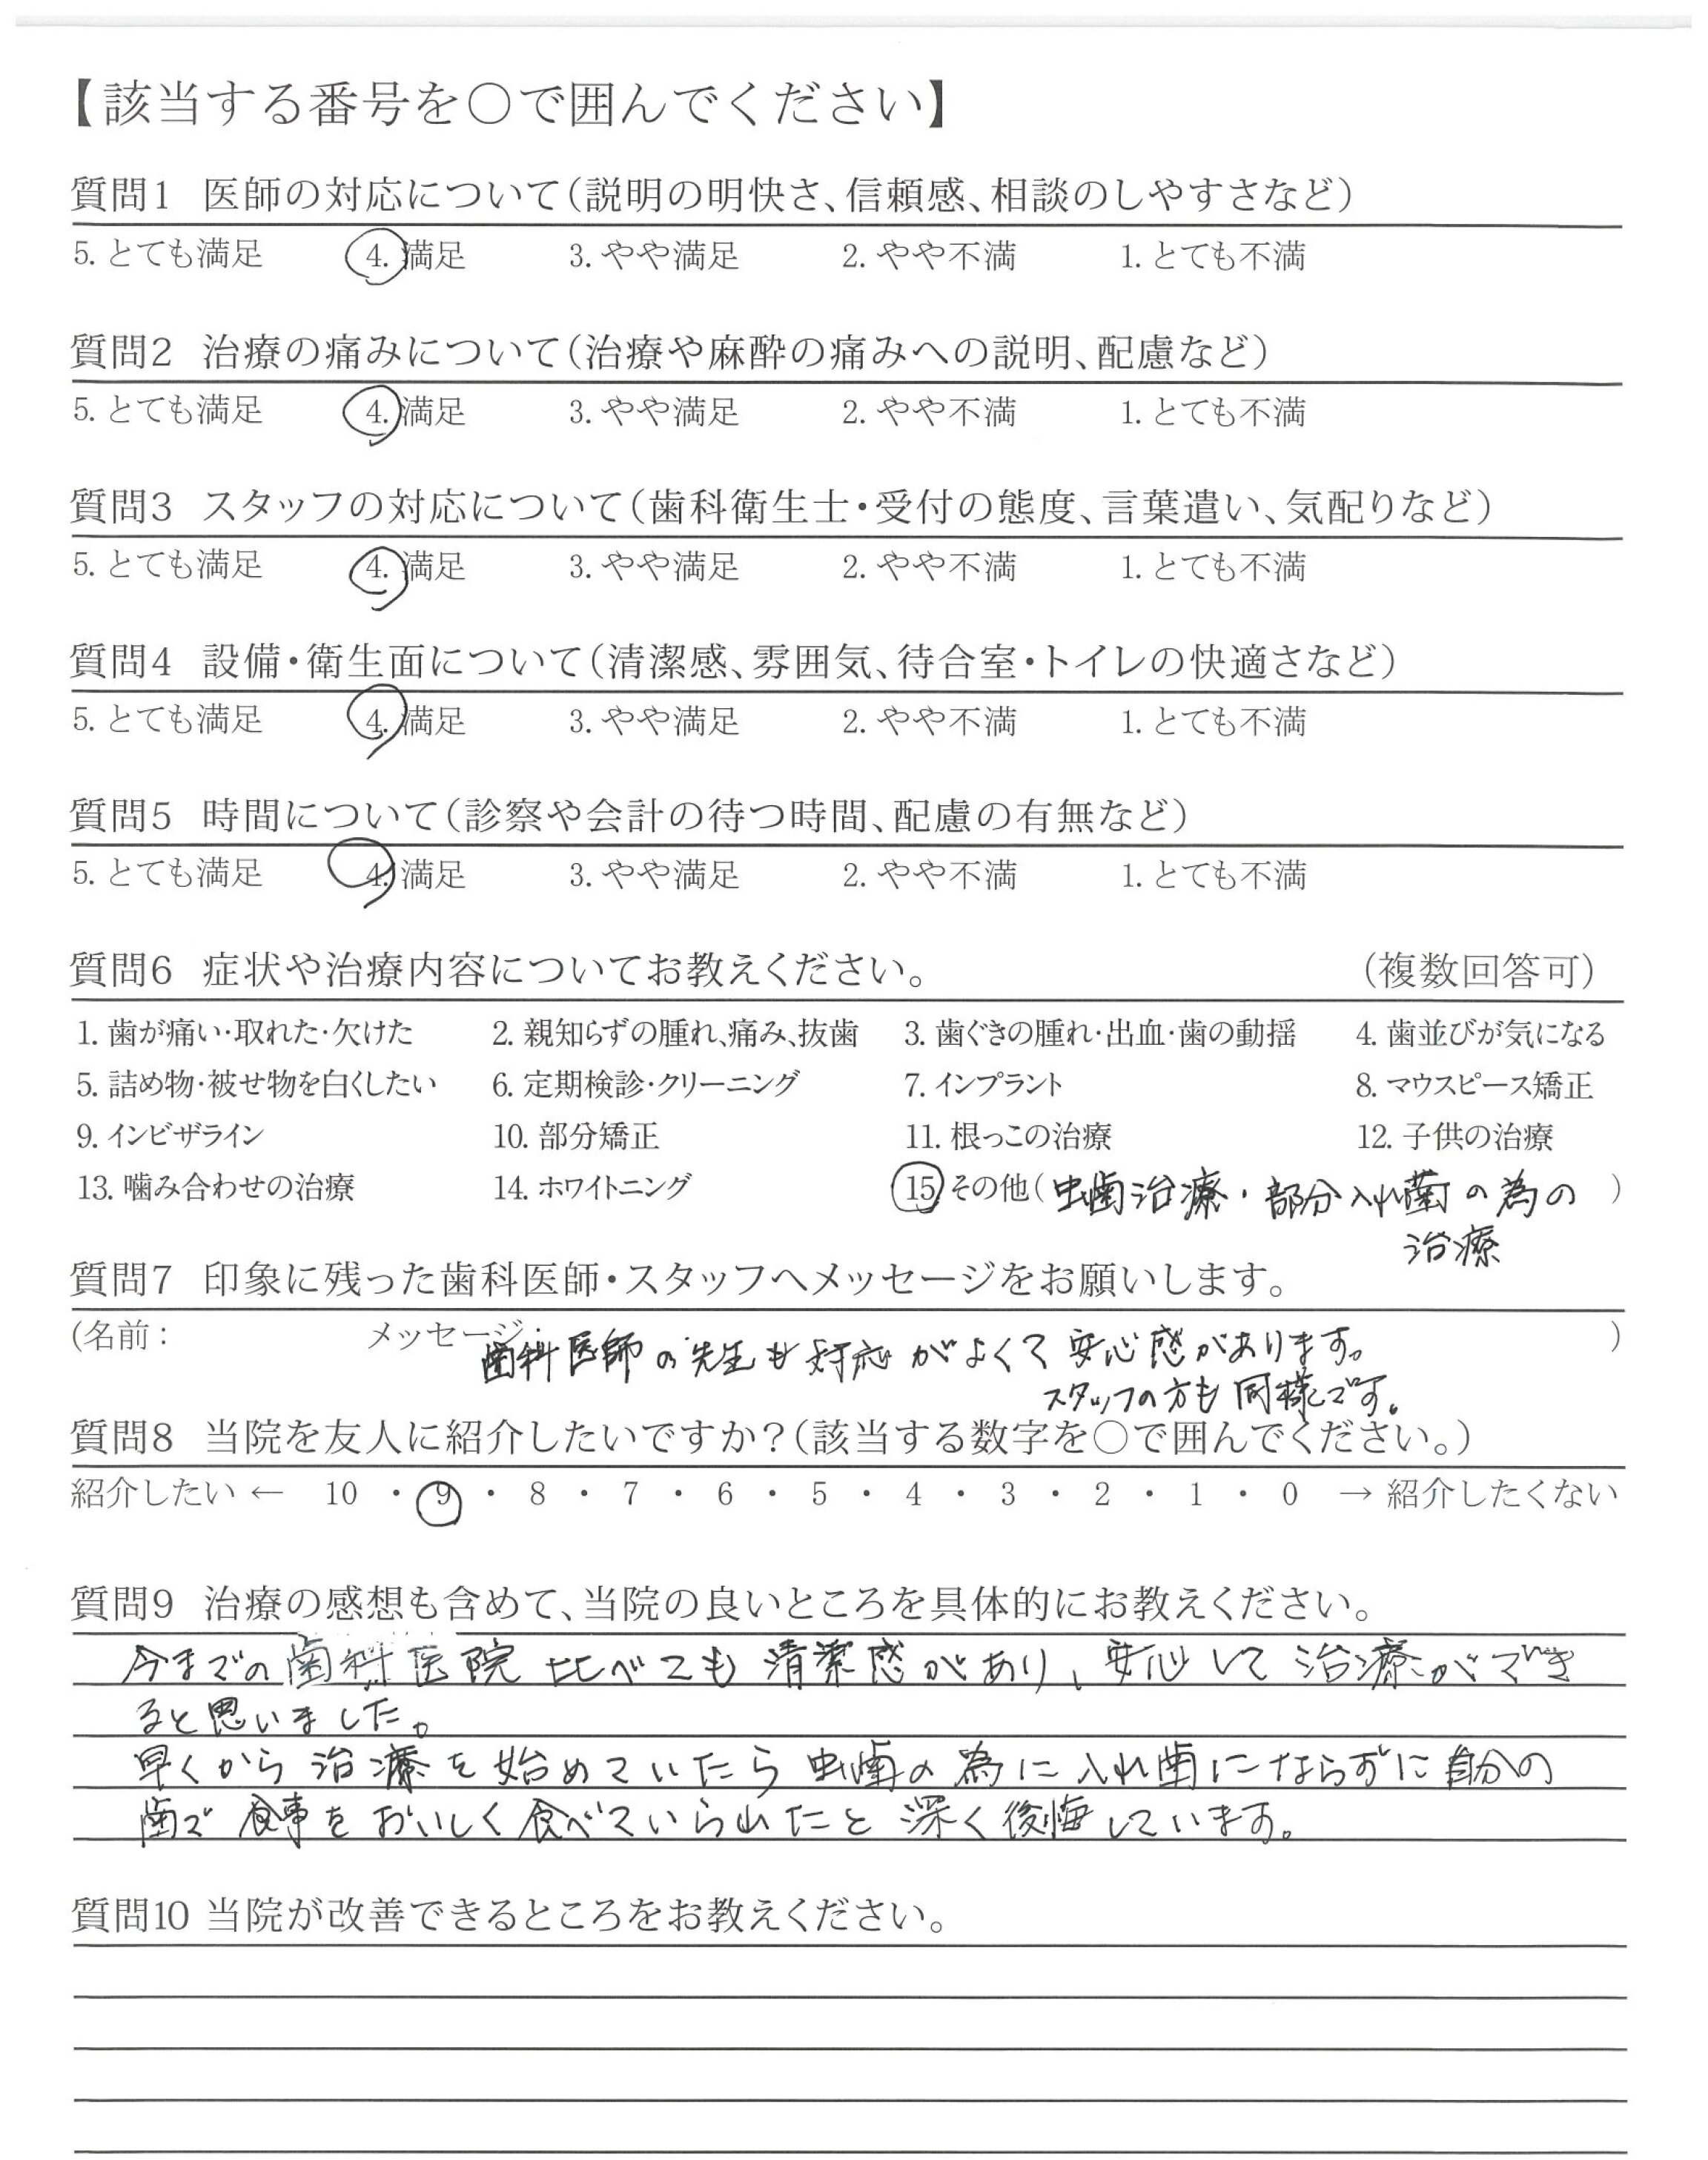 【該当する番号を○で囲んでください】
質問1 医師の対応について（説明の明快さ、信頼感、相談のしやすさなど）
5. とても満足 4. 満足 3. やや満足 2. やや不満 1. とても不満
質問2 治療の痛みについて（治療や麻酔の痛みへの説明、配慮など）
5. とても満足 4. 満足 3. やや満足 2. やや不満 1. とても不満
質問3 スタッフの対応について（歯科衛生士・受付の態度、言葉遣い、気配りなど）
5. とても満足 4. 満足 3. やや満足 2. やや不満 1. とても不満
質問4 設備・衛生面について（清潔感、雰囲気、待合室・トイレの快適さなど）
5. とても満足 4. 満足 3. やや満足 2. やや不満 1. とても不満
質問5 時間について（診察や会計の待つ時間、配慮の有無など）
5. とても満足 4. 満足 3. やや満足 2. やや不満 1. とても不満
質問6 症状や治療内容についてお教えください。 （複数回答可）
1. 歯が痛い・取れた・欠けた 2. 親知らずの腫れ、痛み、抜歯 3. 歯ぐきの腫れ・出血・歯の動揺 4. 歯並びが気になる
5. 詰め物・被せ物を白くしたい 6. 定期検診・クリーニング 7. インプラント 8. マウスピース矯正
9. インビザライン 10. 部分矯正 11. 根っこの治療 12. 子供の治療
13. 噛み合わせの治療 14. ホワイトニング 15 その他（虫歯治療・部分入れ歯の為の ）
治療
質問7 印象に残った歯科医師・スタッフへメッセージをお願いします。
（名前： メッセージ： 歯科医師の先生も対応がよくて安心感があります。 ）
スタッフの方も同様です。
質問8 当院を友人に紹介したいですか？（該当する数字を○で囲んでください。）
紹介したい ← 10 ・ 9 ・ 8 ・ 7 ・ 6 ・ 5 ・ 4 ・ 3 ・ 2 ・ 1 ・ 0 → 紹介したくない
質問9 治療の感想も含めて、当院の良いところを具体的にお教えください。
今までの歯科医院比べても清潔感があり、安心して治療ができ
ると思いました。
早くから治療を始めていたら虫歯の為に入れ歯にならずに自分の
歯で食事をおいしく食べていられたと深く後悔しています。
質問10 当院が改善できるところをお教えください。